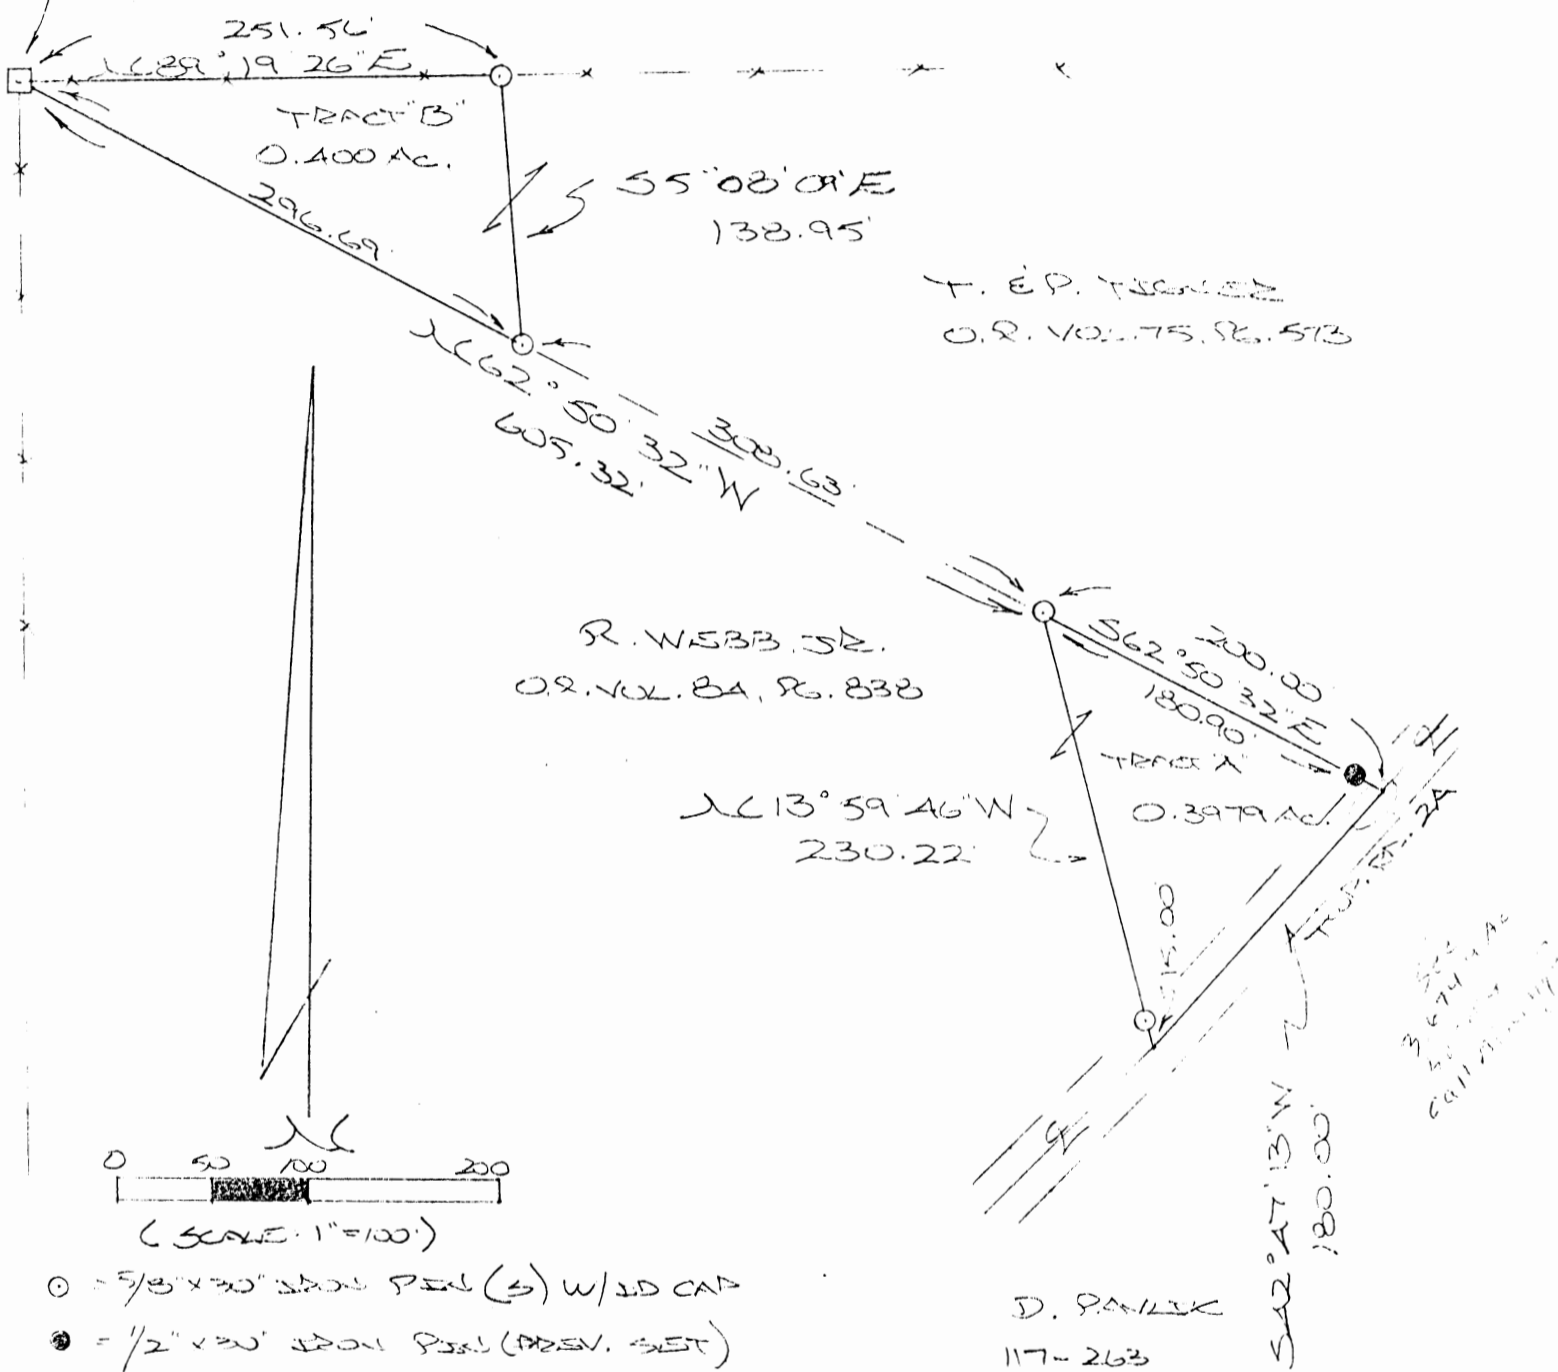 251.56'
N 89° 19' 26" E
TRACT "B"
0.400 AC.
S 5° 08' 09" E
138.95'
296.69'
T. & P. TIGNER
O.R. VOL. 75, PG. 573
N 62° 50' 32" W
605.32'
308.63'
R. WEBB, JR.
O.R. VOL. 84, PG. 838
200.00'
S 62° 50' 32" E
180.90'
TRACT "A"
0.3979 AC.
N 13° 59' 46" W
230.22'
15.00'
TWP. RD. 2A
S 42° 47' 13" W
180.00'
N
0 50 100 200
(SCALE: 1"=100')
= 5/8" x 30" IRON PIN (S) W/ID CAP
= 1/2" x 30" IRON PIN (PREV. SET)
D. PAVLIK
117-263